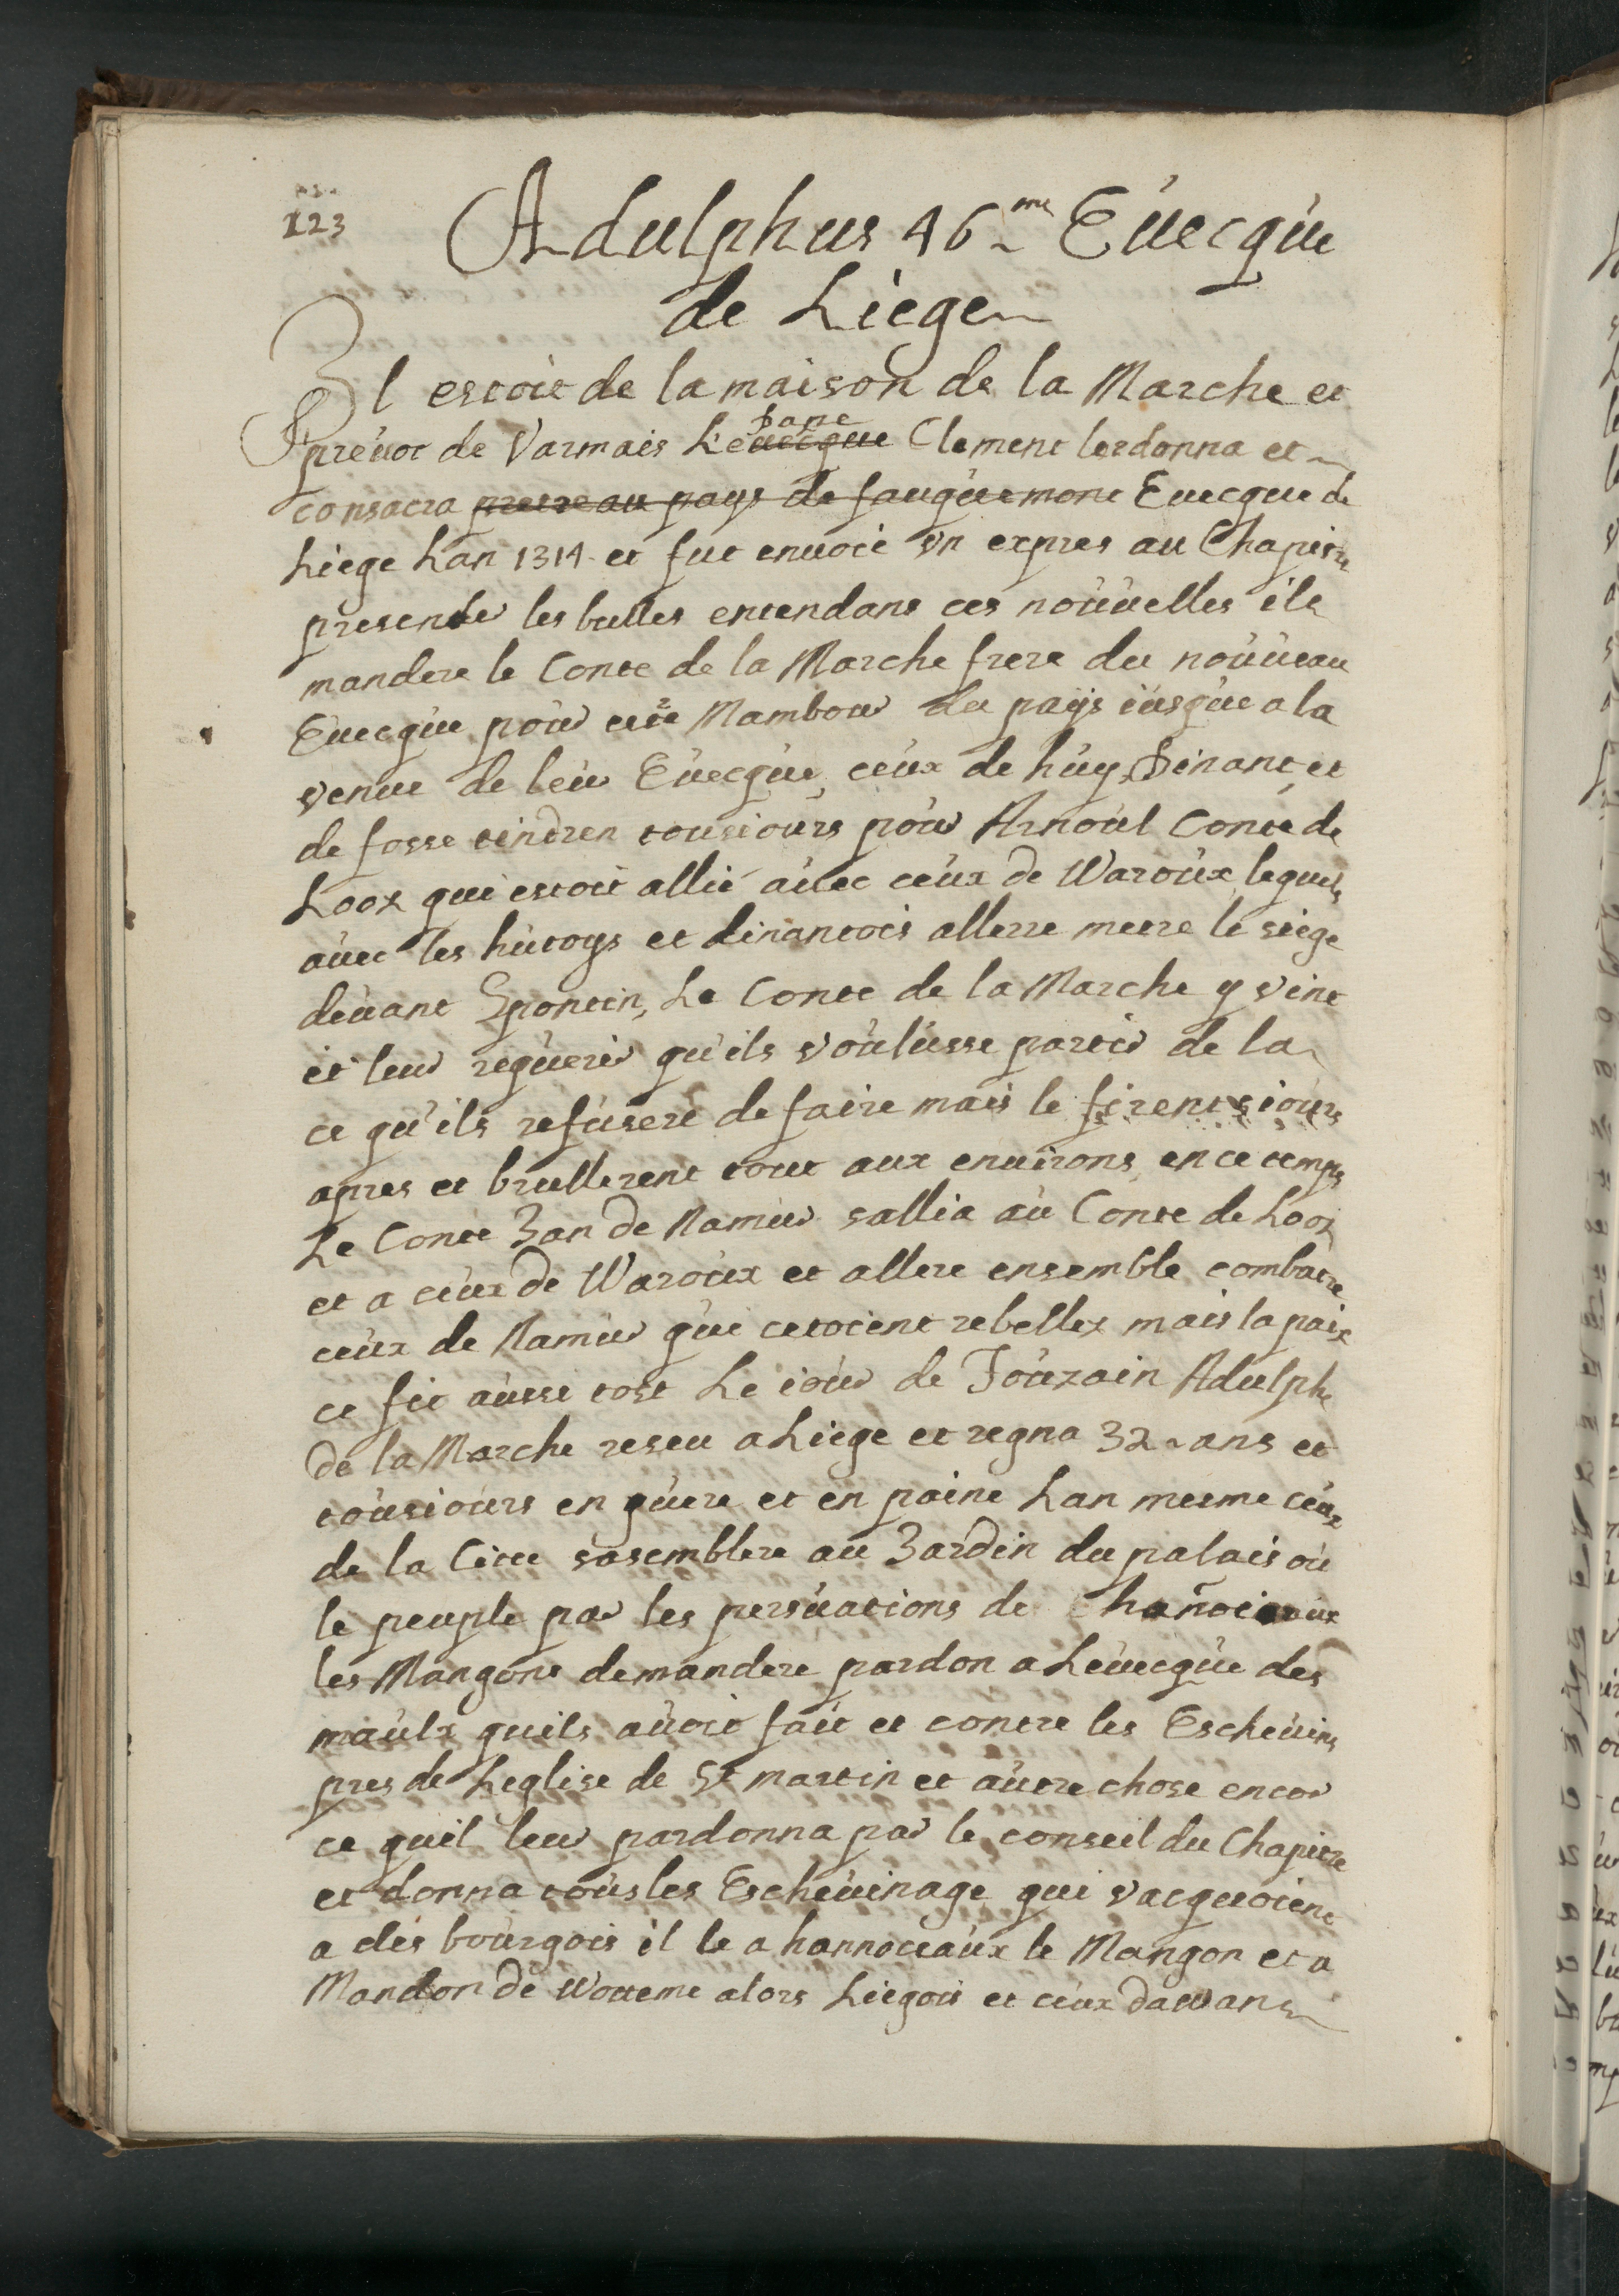 123
Adulphus 46me Evecque
de Liege
Il estoit de la maison de la Marche et
prevot de Varmais Le pape Clement lordonna et
consacra prevre au pays de fauquemont Evecque de
Liege Lan 1314 et fut envoié vn expres au Chapitre
presenter les bulles entendans ces nouvelles ils
mandere le Conte de la Marche frere du nouveau
Evecque pour etre Mambour du pays iusque a la
venue de leur Evecque, ceux de huy, Dinant, et
de fosse tindren tousiours pour Arnoul Conte de
Looz qui estoit allié avec ceux de Waroux, lequels
avec les hutoys et dinantois allerre mettre le siege
devant Spontin, Le Conte de la Marche y vint
et leur requerir qu'ils voulusse partir de la
ce qu'ils refusere de faire mais le firent iours
apres et brullerent tout aux environs, en ce temps
Le Conte Jan de Namur sallia au Conte de Looz
et a ceux de Waroux et allere ensemble combatre
ceux de Namur qui cetoient rebellez mais la paix
ce fit aussi tost Le iour de Touzain Adulphe
de la Marche reseu a Liege et regna 32 ans et
tousiours en guere et en paine Lan mesme ceux
de la Citee sasemblere au Jardin du palais ou
le peuple par les persuations de hanoieaux
les Mangons demandere pardon a Levecque des
maulx quils avoit fait et contre les Eschevins
pres de Leglise de St martin et autre chose encor
ce quil leur pardonna par le conseil du Chapitre
et donna tous les Eschevinage qui vacquoient
a des bourgois il le a hannoceaux le Mangon et a
Mandon de Wotteme alors Liegois et ceux dawans